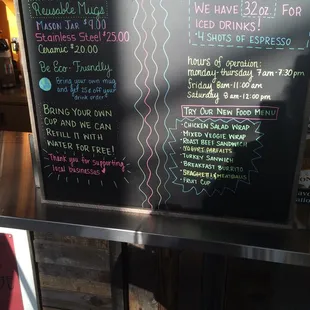 Reusable Mugs
Mason Jar $9.00
Stainless Steel $25.00
Ceramic $20.00
Be Eco-Friendly
Bring your own mug
and get 25¢ off your
drink order
Bring your own
cup and we can
refill it with
water for free!
Thank you for supporting
local businesses
We have 32oz for
iced drinks!
4 shots of espresso
hours of operation:
monday-thursday 7am-7:30pm
Friday 8am-11:00am
Saturday 9am-12:00pm
Try Our New Food Menu
Chicken Salad Wrap
Mixed Veggie Wrap
Roast Beef Sandwich
Yogurt Parfaits
Turkey Sandwich
Breakfast Burrito
Spaghetti & Meatballs
Fruit Cup